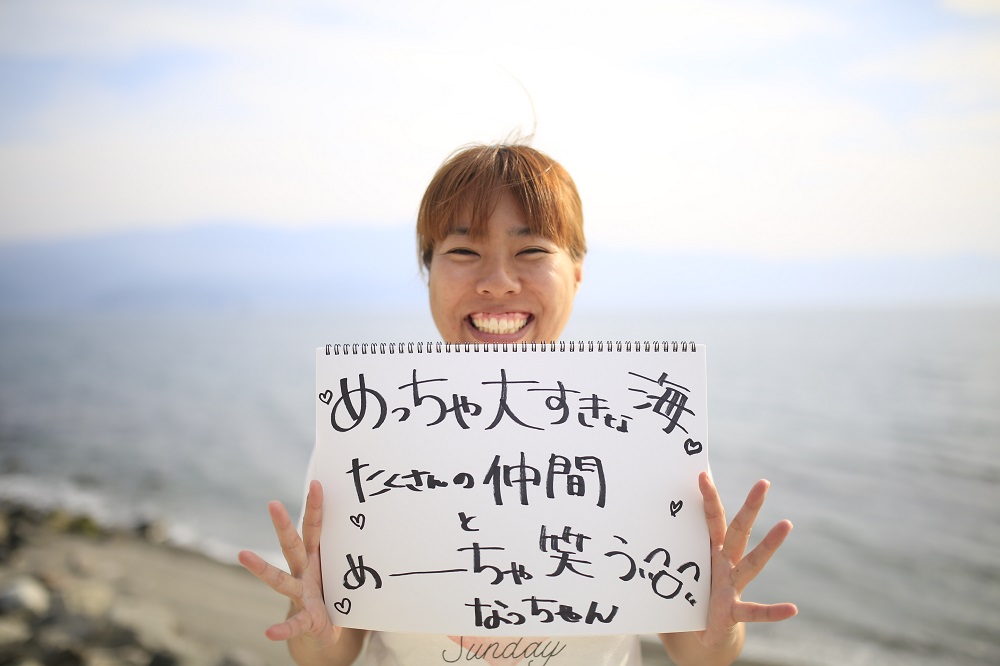 めっちゃ大すきな海
たくさんの仲間
と
めーーちゃ笑う
なっちゃん
Sunday